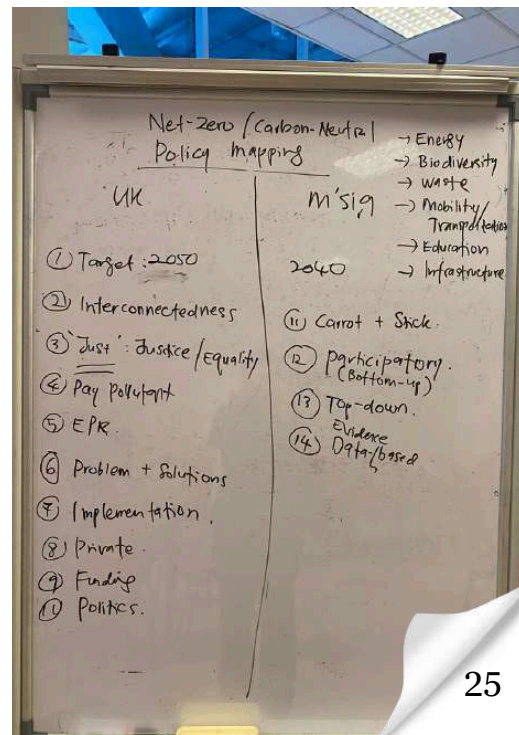 Net-Zero / Carbon-Neutral
Policy mapping
→ Energy
→ Biodiversity
→ waste
→ Mobility/
Transportation
→ Education
→ Infrastructure
UK
① Target : 2050
② Interconnectedness
③ 'Just' : Justice / Equality
④ Pay Pollutant
⑤ EPR
⑥ Problem + Solutions
⑦ Implementation.
⑧ Private.
⑨ Funding
⑩ Politics.
m'sia
2040
⑪ Carrot + Stick.
⑫ participatory.
(Bottom-up)
⑬ Top-down.
Evidence
⑭ Data/based
25